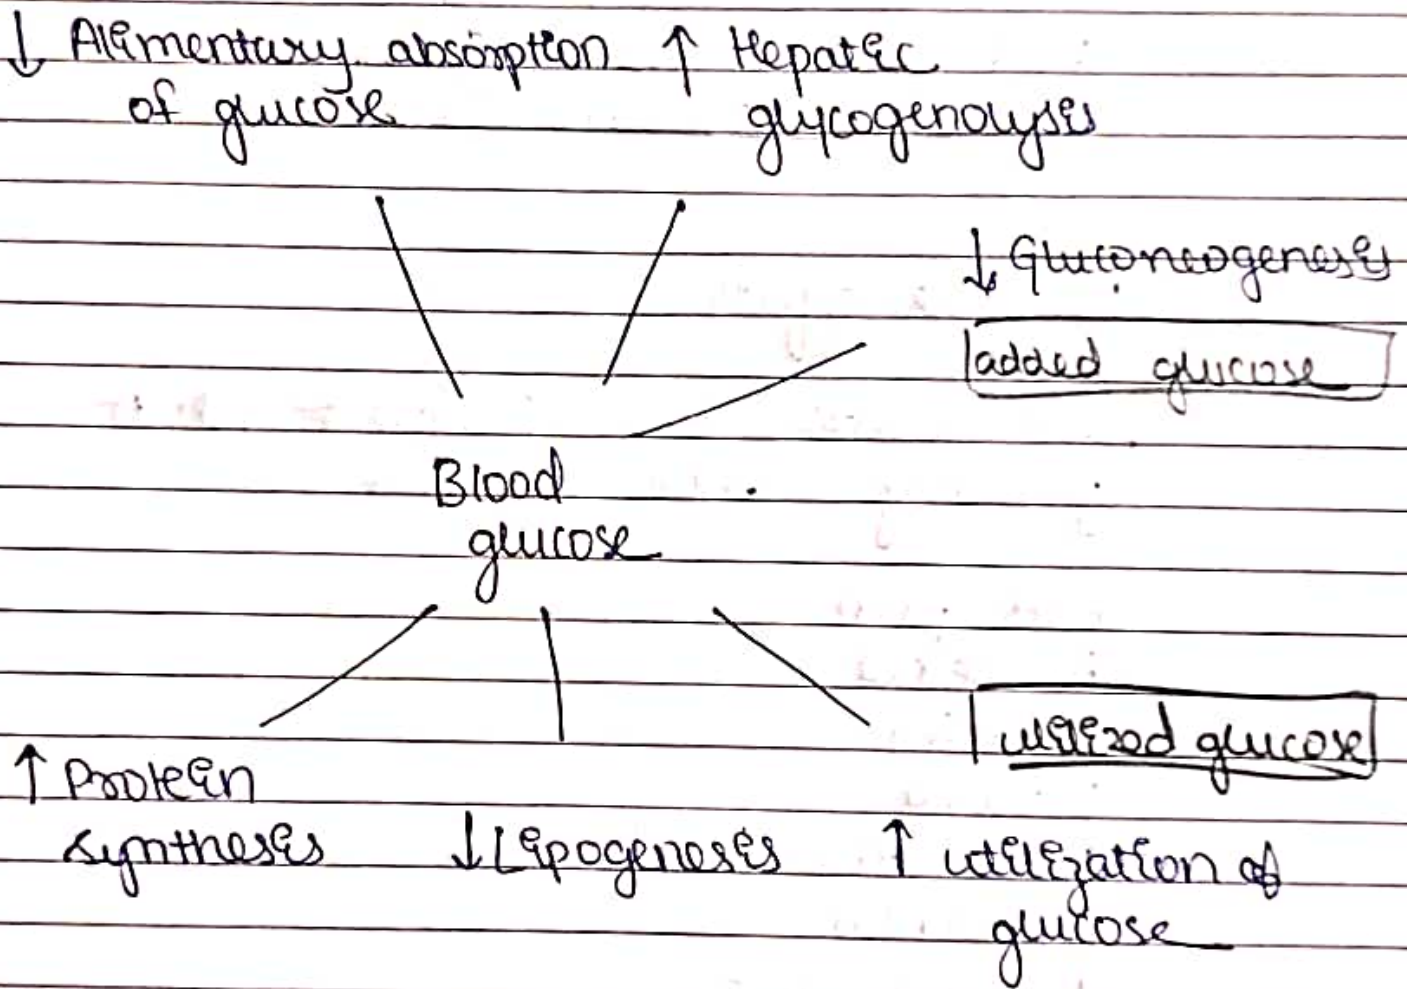 ↓ Alimentary absorption ↑ Hepatic
of glucose glycogenolysis
↓ Gluconeogenesis
added glucose
Blood
glucose
utilized glucose
↑ Protein
synthesis ↓ Lipogenesis ↑ utilization of
glucose